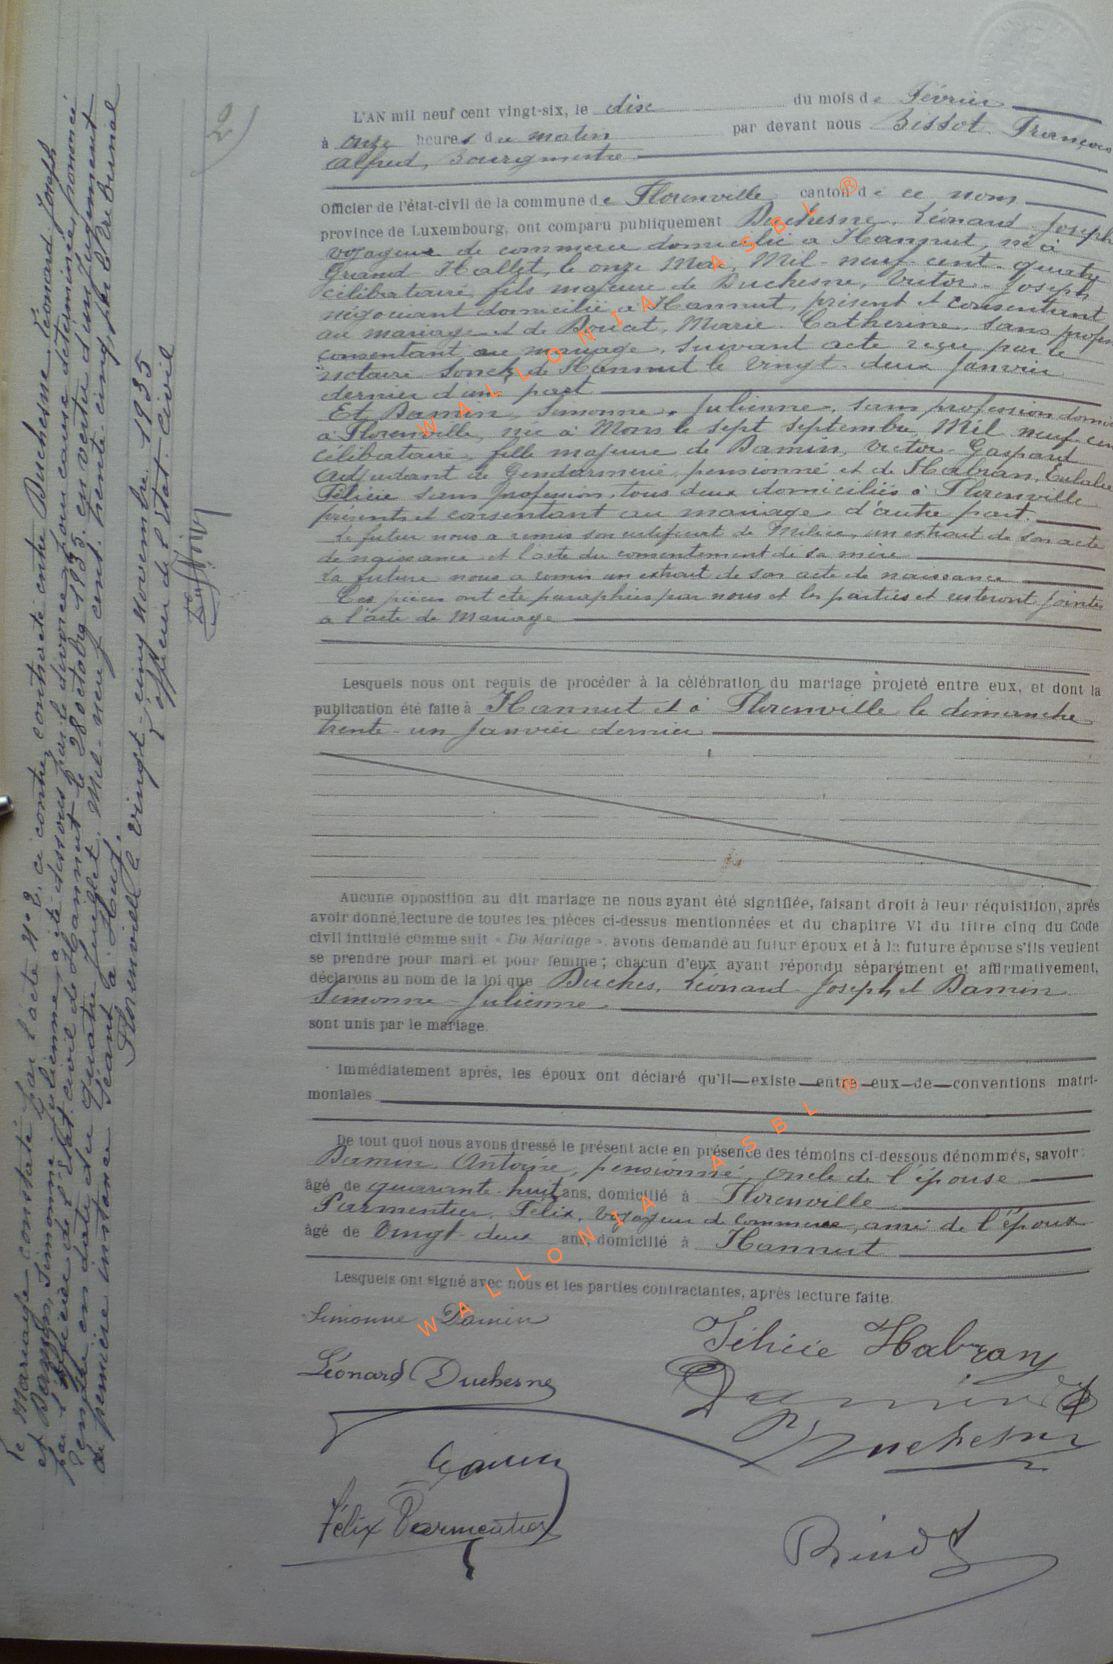 2)
L'AN mil neuf cent vingt-six, le dix du mois de Février
à onze heures du matin par devant nous Bissot François
Alfred, Bourgmestre
Officier de l'état-civil de la commune de Florenville canton de ce nom
province de Luxembourg, ont comparu publiquement Duchesne, Léonard Joseph
voyageur de commerce domicilié à Hannut, né à
Grand Hallet, le onze Mai, Mil neuf cent quatre
célibataire, fils majeur de Duchesne, Victor Joseph
négociant domicilié à Hannut, présent et consentant
au mariage et de Marie Catherine, sans profes
consentant au mariage, suivant acte reçu par le
notaire de Hannut le vingt-deux Janvier
dernier d'une part
Et Damin, Simonne, Julienne, sans profession domici
à Florenville, née à Mons le sept septembre Mil neuf cen
célibataire, fille majeure de Damin, Victor Gaspard
adjudant de Gendarmerie pensionné et de Habran, Eulalie
Félicie sans profession, tous deux domiciliés à Florenville
présents et consentant au mariage d'autre part.
Le futur nous a remis son certificat de Milice, un extrait de son acte
de naissance et l'acte du consentement de sa mère
La future nous a remis un extrait de son acte de naissance
Ces pièces ont été paraphées par nous et les parties et resteront jointes
à l'acte de Mariage
Lesquels nous ont requis de procéder à la célébration du mariage projeté entre eux, et dont la
publication été faite à Hannut et à Florenville le dimanche
trente-un Janvier dernier
Aucune opposition au dit mariage ne nous ayant été signifiée, faisant droit à leur réquisition, après
avoir donné lecture de toutes les pièces ci-dessus mentionnées et du chapitre VI du titre cinq du Code
civil intitulé comme suit « Du Mariage », avons demandé au futur époux et à la future épouse s'ils veulent
se prendre pour mari et pour femme ; chacun d'eux ayant répondu séparément et affirmativement,
déclarons au nom de la loi que Duches, Léonard Joseph et Damin
Simonne Julienne
sont unis par le mariage.
Immédiatement après, les époux ont déclaré qu'il existe entre eux de conventions matri-
moniales
De tout quoi nous avons dressé le présent acte en présence des témoins ci-dessous dénommés, savoir :
Damin, Antoine, pensionné, oncle de l'épouse
âgé de quarante-huit ans, domicilié à Florenville
Parmentier, Félix, voyageur de commerce, ami de l'époux
âgé de vingt-deux ans, domicilié à Hannut
Lesquels ont signé avec nous et les parties contractantes, après lecture faite.
Simonne Damin
Félicie Habran
Léonard Duchesne
Damin
Duchesne
Damin
Félix Parmentier
Le Mariage constaté par l'acte N° 2, ci contre, contracté entre Duchesne Léonard Joseph
et Damin, Simonne Julienne a été dissous par le divorce pour cause déterminée, prononcé
par l'officier de l'État civil de Hannut le 28 octobre 1935, en vertu d'un Jugement
rendu en date du quatre Juillet Mil neuf cent trente cinq, par le tribunal
de première instance séant à Huy.
Florenville le vingt-cinq Novembre 1935
L'officier de l'État civil
WALLONIA ASBL ®
WALLONIA ASBL ®